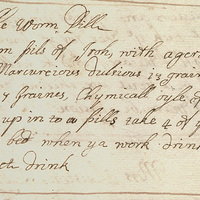 e Worm Pills
pils of Iroh, with ager
Marcureious dulcious 13 grain
7 Graines, Chymicall oyle, of
up in to a pills take 4 of y
bed when ya work drin
drink